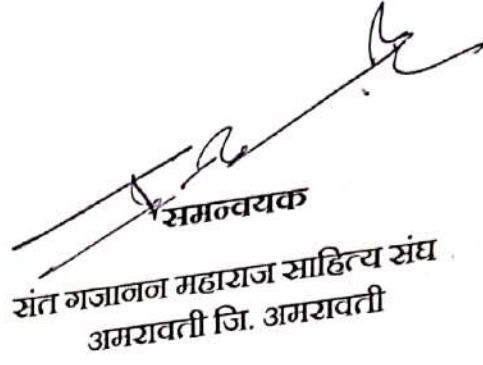 समन्वयक
संत गजानन महाराज साहित्य संघ
अमरावती जि. अमरावती